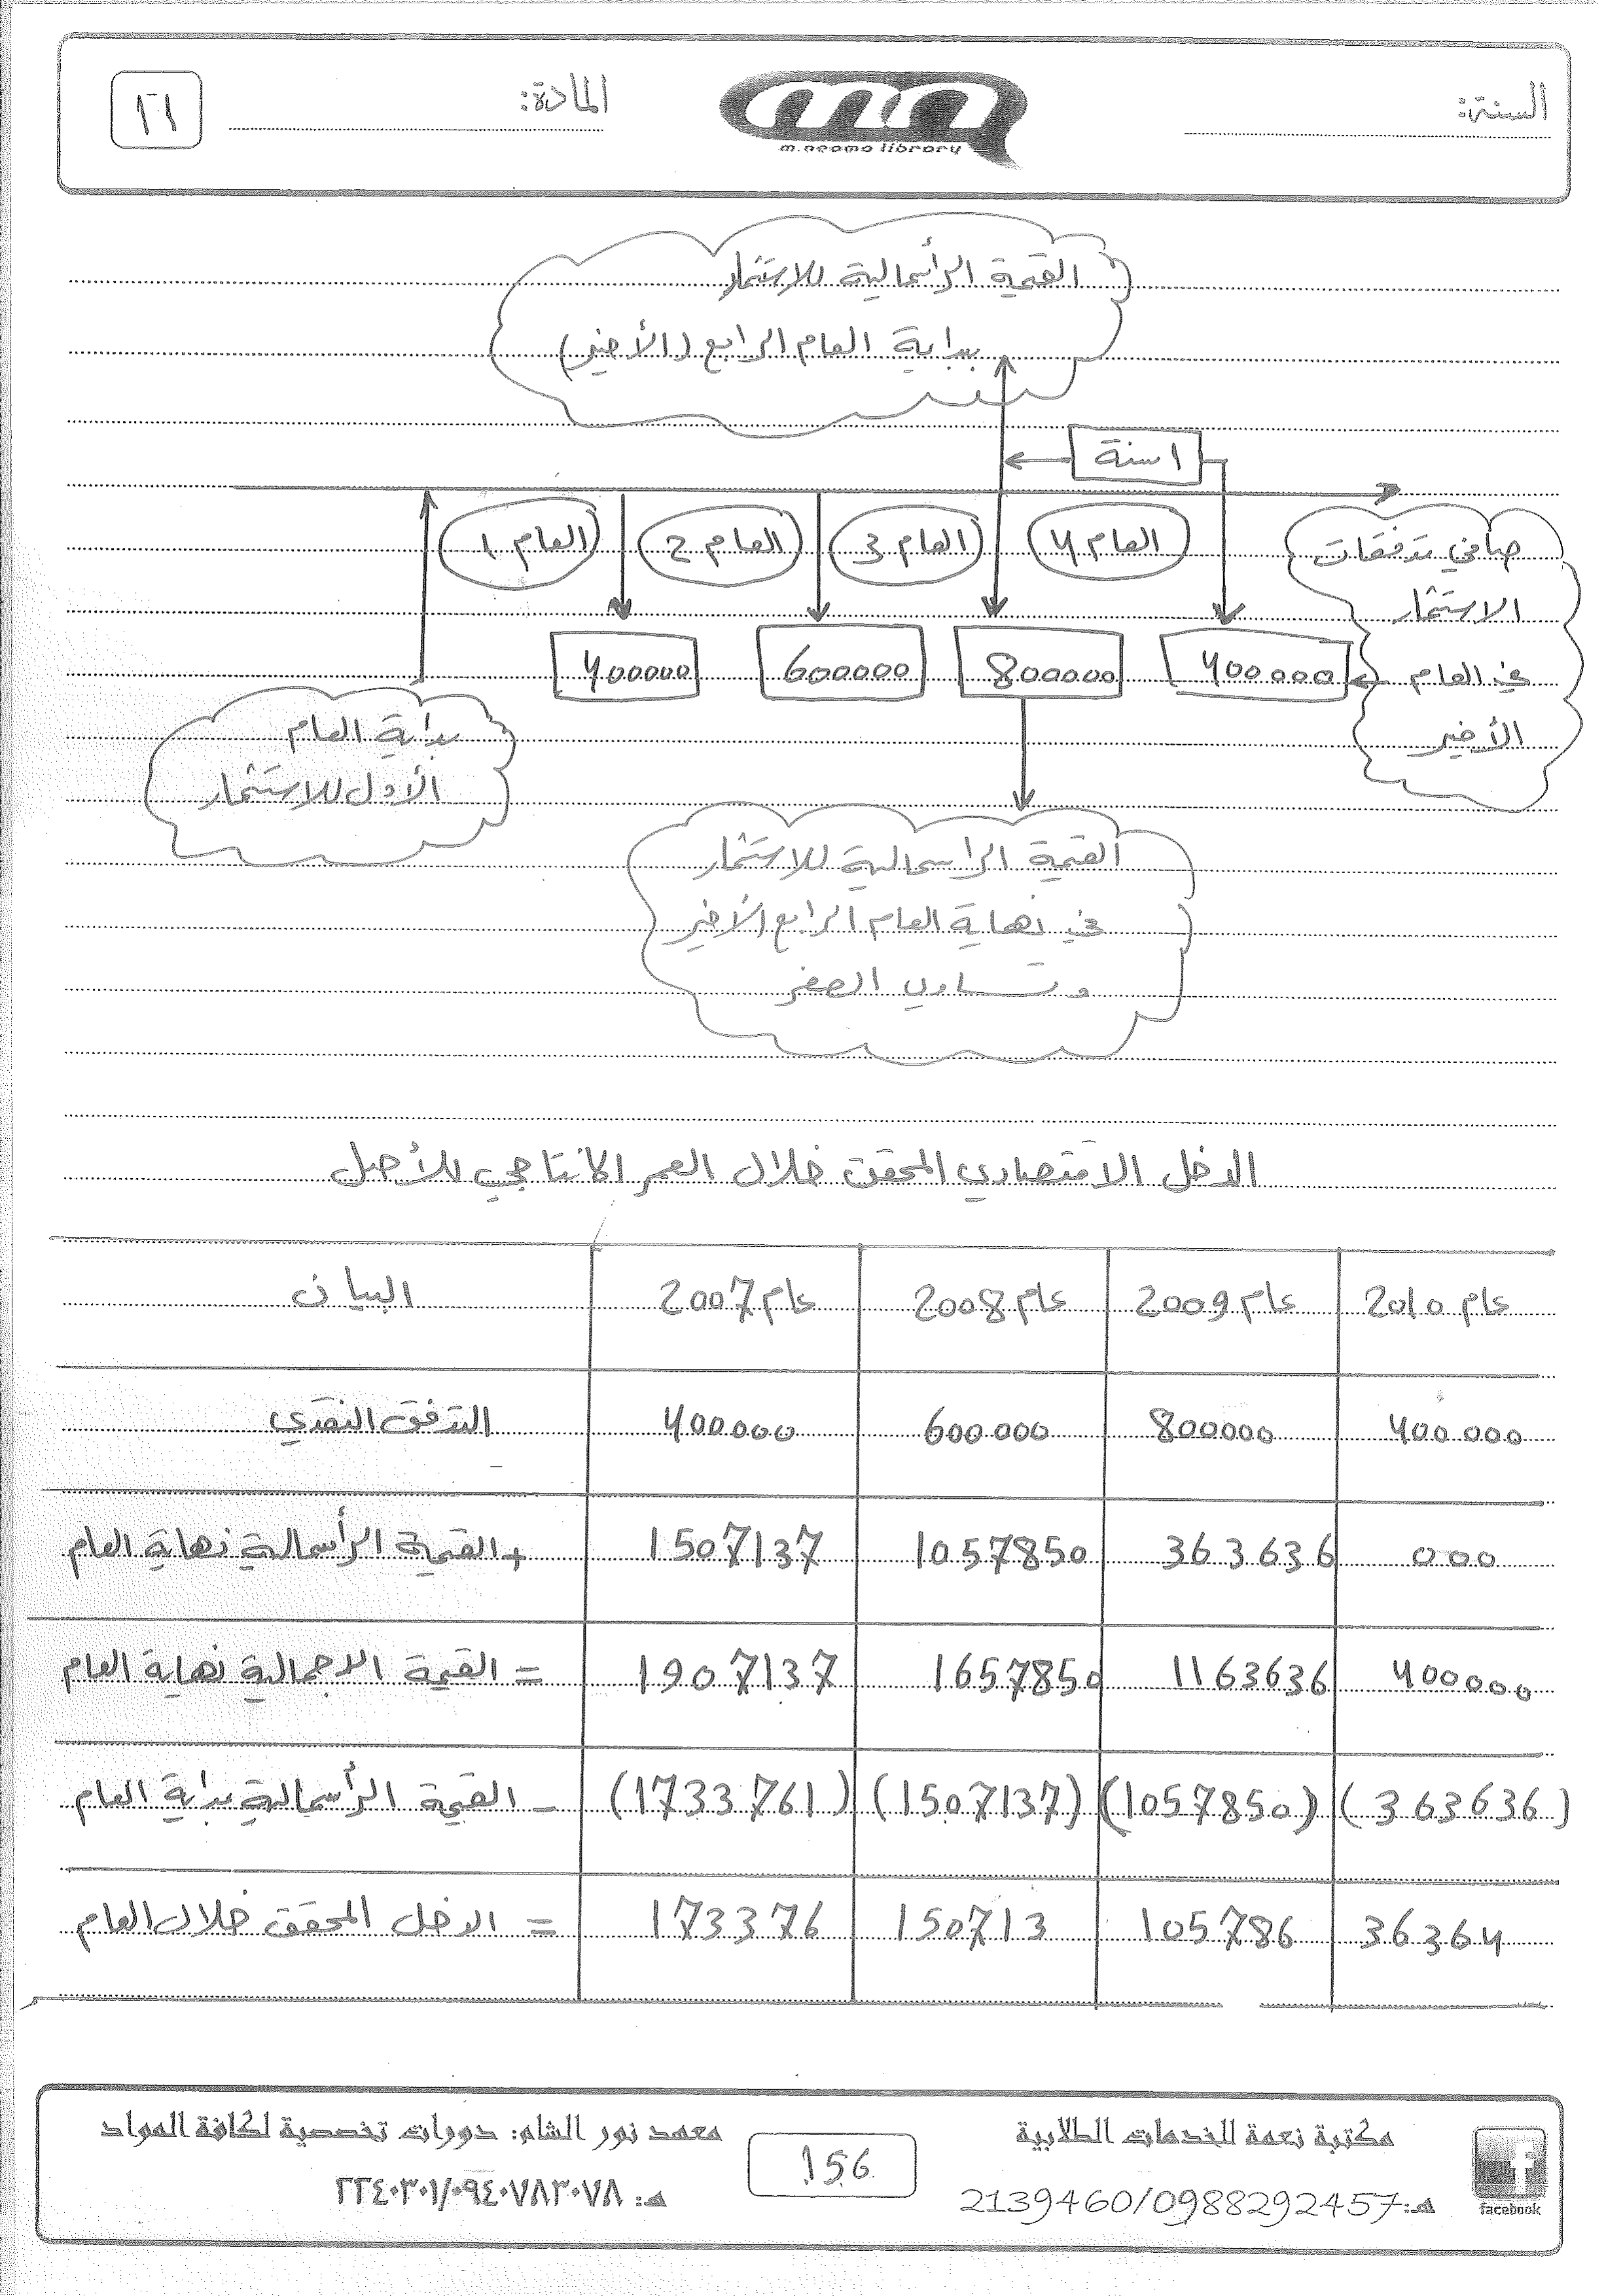 السنة:
m.neama library
المادة:
١٦
القيمة الرأسمالية للاستثمار
بداية العام الرابع (الأخير)
1 سنة
العام 1
العام 2
العام 3
العام 4
صافي تدفقات
الاستثمار
في العام
الأخير
400000
600000
800000
400000
بداية العام
الأول للاستثمار
القيمة الراسمالية للاستثمار
في نهاية العام الرابع الأخير
وتساوي الصفر
الدخل الاقتصادي المحقق خلال العمر الانتاجي للأصل
البيان عام 2007 عام 2008 عام 2009 عام 2010
التدفق النقدي 400000 600000 800000 400000
+ القيمة الرأسمالية نهاية العام 1507137 1057850 363636 000
= القيمة الاجمالية نهاية العام 1907137 1657850 1163636 400000
- القيمة الرأسمالية بداية العام (1733761) (1507137) (1057850) (363636)
= الدخل المحقق خلال العام 173376 150713 105786 36364
مكتبة نعمة للخدمات الطلابية
هـ: 2139460/0988292457
facebook
156
معهد نور الشام: دورات تخصصية لكافة المواد
هـ: ٢٢٤٠٣٠١/٠٩٤٠٧٨٣٠٧٨